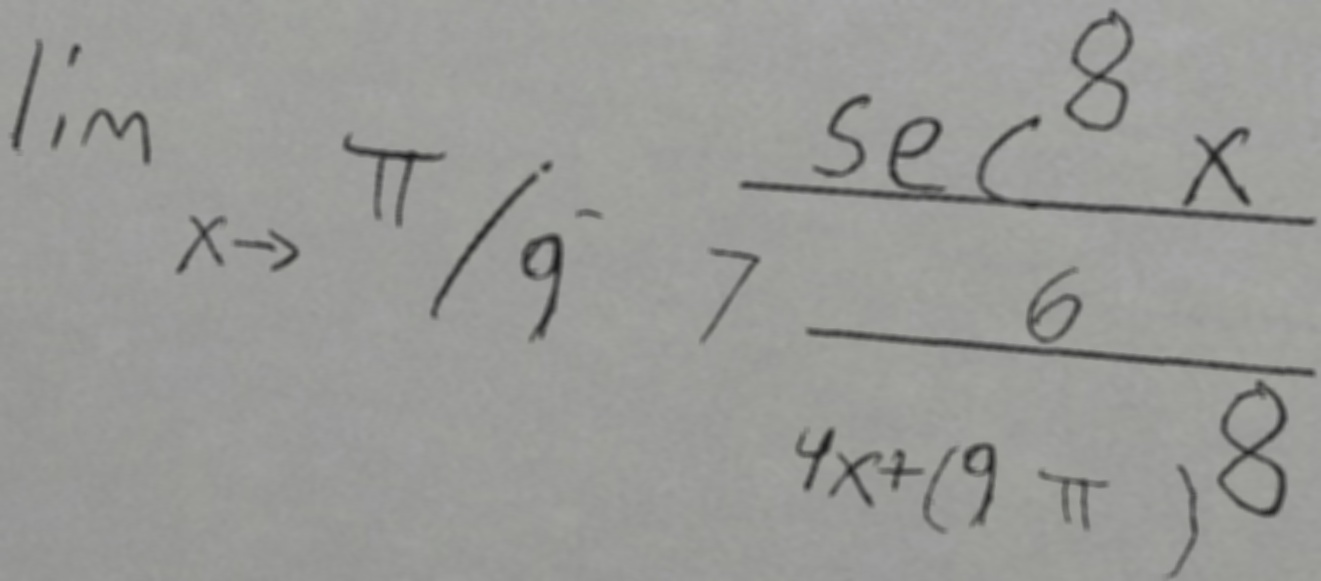 lim x→π/9⁻ sec⁸ x / (7 6 / (4x+(9π)⁸))